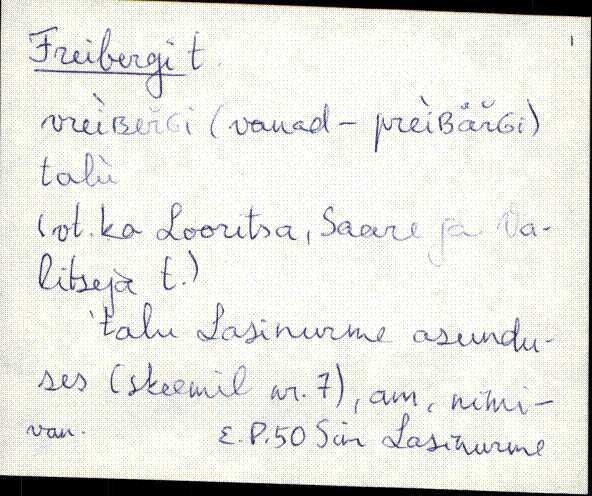 Freibergi t.
1
vreìʙeřɢi (vanad – preìʙåřɢi)
talù
(vt. ka Looritsa, Saare ja Va-
litseja t.)
talu Lasinurme asundu-
ses (skeemil nr. 7), am, nimi –
van. E.P. 50 Sim Lasinurme